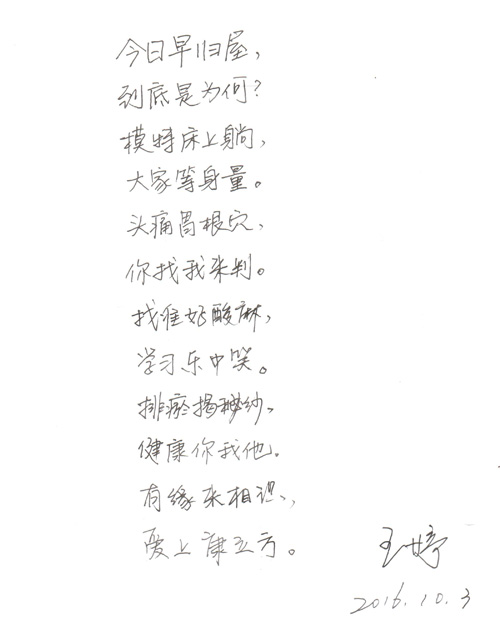 今日早归屋,
到底是为何?
模特床上躺,
大家等身量。
头痛胃根穴,
你找我来判。
找准好酸麻,
学习乐中笑。
排瘀揭秘纱,
健康你我他.
有缘来相识,
爱上康五方。
王婷
2016.10.3